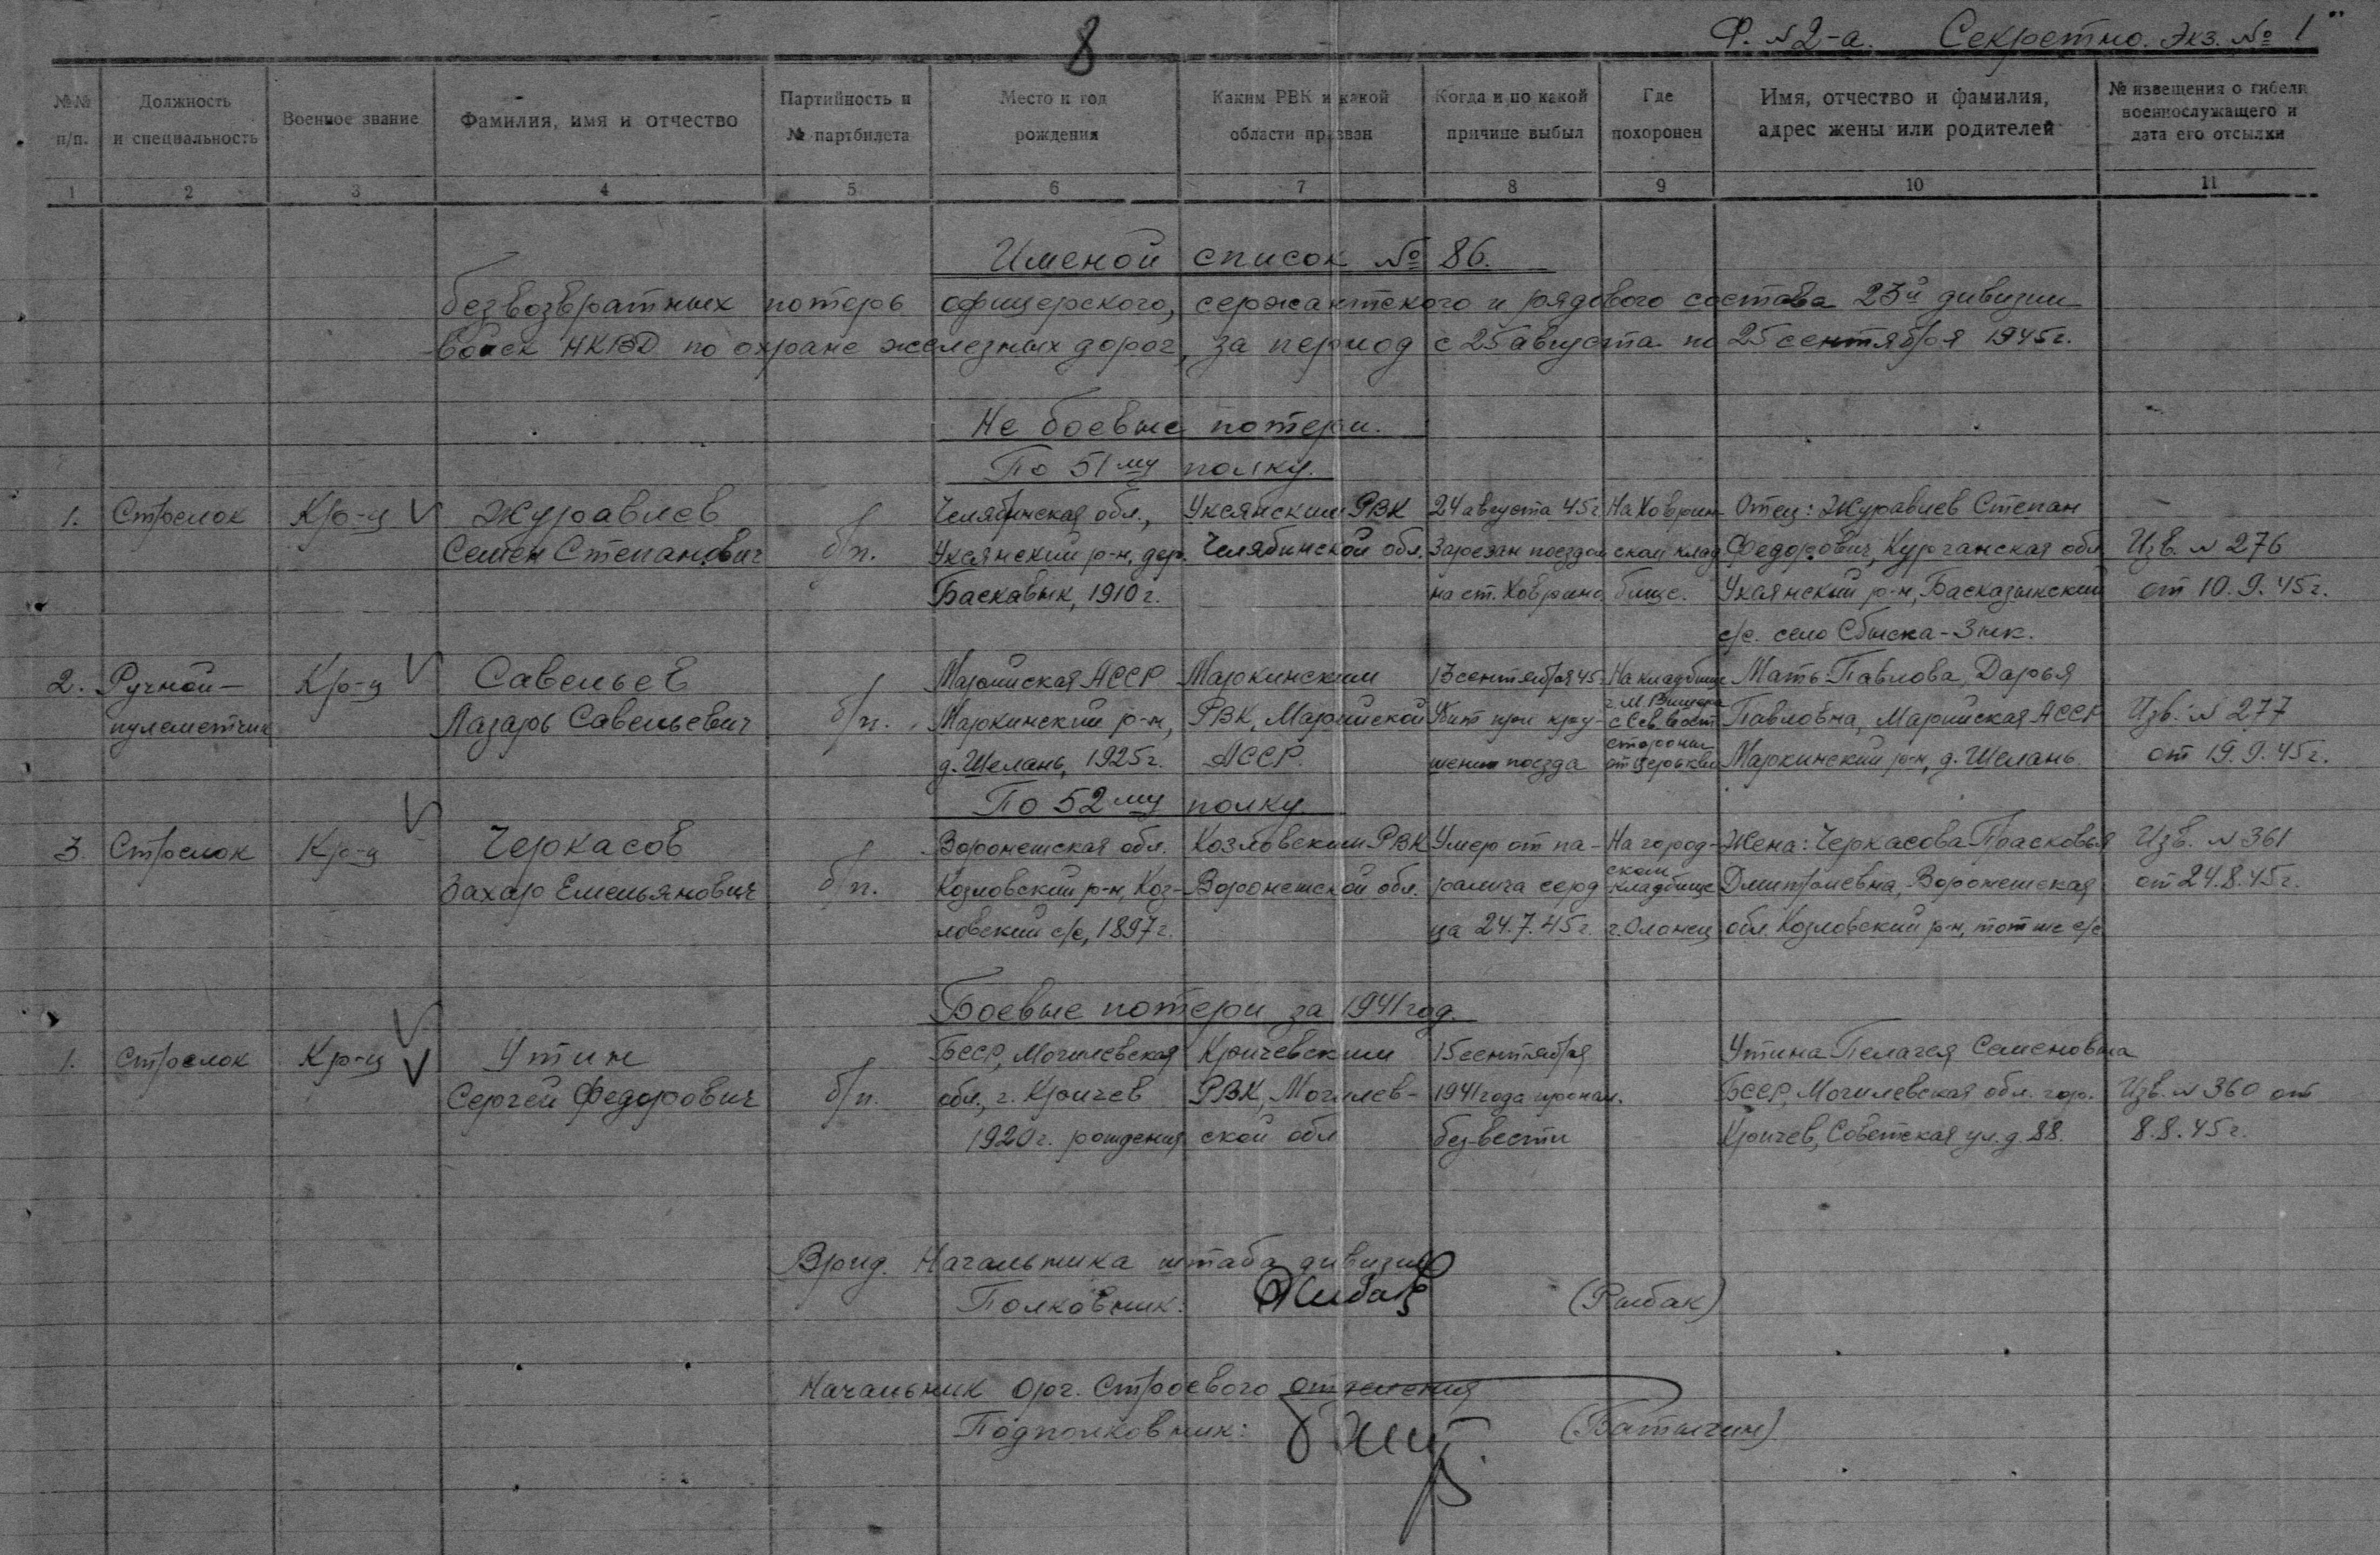 8
Ф. №2-а. Секретно. Экз. № 1
№№ п/п.
Должность и специальность
Военное звание
Фамилия, имя и отчество
Партийность и № партбилета
Место и год рождения
Каким РВК и какой области призван
Когда и по какой причине выбыл
Где похоронен
Имя, отчество и фамилия, адрес жены или родителей
№ извещения о гибели военнослужащего и дата его отсылки
1 2 3 4 5 6 7 8 9 10 11
Именой список № 86.
безвозвратных потерь офицерского, сержантского и рядового состава 23й дивизии
войск НКВД по охране железных дорог, за период с 25 августа по 25 сентября 1945г.
Не боевые потери.
По 51му полку.
1. Стрелок Кр-ц Журавлев Челябинская обл., Уксянским РВК 24 августа 45г. На Ховрин- Отец: Журавлев Степан
Семен Степанович б/п. Уксянский р-н, дер. Челябинской обл. Зарезан поездом ском клад Федорович, Курганская обл Изв. № 276
Баскавык, 1910г. на ст. Ховрино бище. Укаянский р-н, Басказыкский от 10.9.45г.
с/с. село
2. Ручной- Кр-ц Савельев Марийская АССР Маркинским 13 сентября 45 На кладбище Мать Павлова Дарья
пулеметчик Лазарь Савельевич б/п. Маркинский р-н, РВК, Марийской Убит при кру- г. М. Вишера с Сев. вост. Павловна, Марийская АССР Изв. № 277
д. Шелань, 1925г. АССР. шении поезда стороны от церкви Маркинский р-н, д. Шелань. от 19.9.45г.
По 52му полку
3. Стрелок Кр-ц Черкасов Воронежская обл. Козловским РВК Умер от па- На город- Жена: Черкасова Прасковья Изв. № 361
Захар Емельянович б/п. Козловский р-н, Коз- Воронежской обл. ралича серд ском кладбище Дмитриевна, Воронежская от 24.8.45г.
ловский с/с, 1897г. ца 24.7.45г. г. Олонец обл. Козловский р-н, тот же с/с
Боевые потери за 1941 год.
1. Стрелок Кр-ц Утин БССР, Могилевская Кричевским 15 сентября Утина Пелагея Семеновна
Сергей Федорович б/п. обл., г. Кричев РВК, Могилев- 1941 года пропал. БССР, Могилевская обл. гор. Изв. № 360 от
1920г. рождения ской обл без вести Кричев, Советская ул. д. 88. 8.8.45г.
Врид. Начальника штаба дивизии
Полковник: (Рыбак)
Начальник Орг. Строевого отделения
Подполковник: (Батычин)